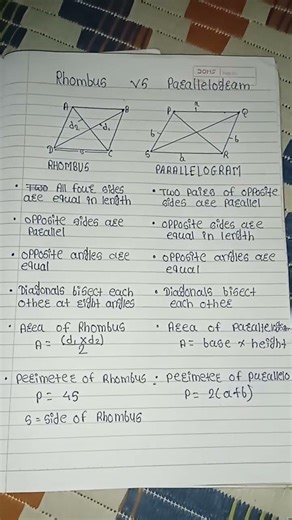 Rhombus VS Parallelogram
A B
d2 d1
D a C
RHOMBUS
P a Q
b b
S a R
PARALLELOGRAM
• Two All four sides are equal in length
• Two Paires of opposite sides are Parallel
• opposite sides are Parallel
• opposite sides are equal in length
• opposite angles are equal
• opposite angles are equal
• Diagonals bisect each other at right angles
• Diagonals bisect each other
• Area of Rhombus
A = (d1 x d2) / 2
• Area of Parallelogram
A = base x height
• Perimeter of Rhombus
P = 4S
S = Side of Rhombus
• Perimeter of Parallelo
P = 2(a+b)